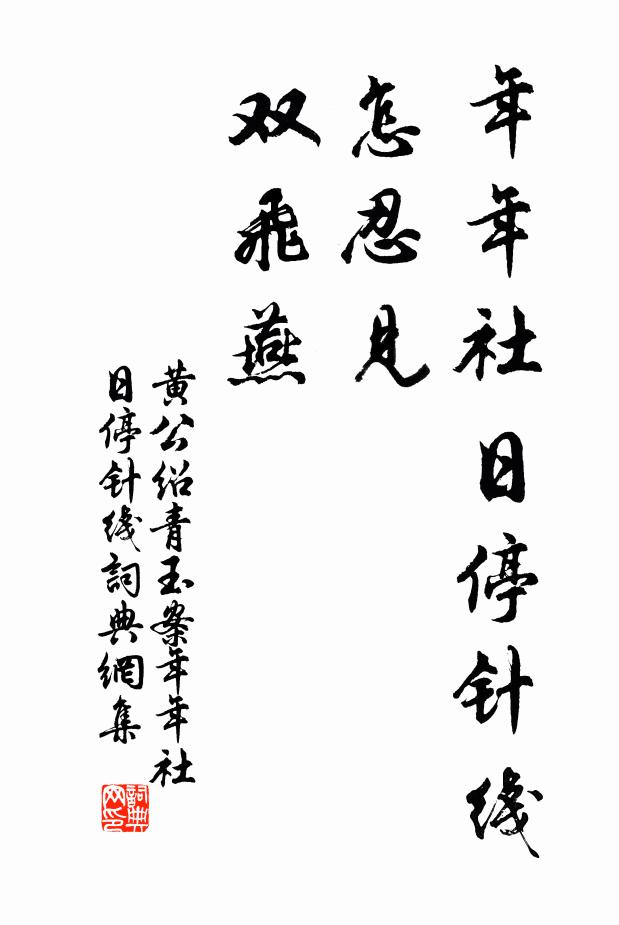 年年社日停针线
怎忍见
双飛燕
黄公绍青玉案年年社
日停针线詞典網集
詞典网印